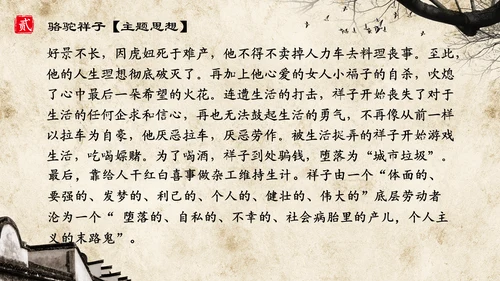 贰 骆驼祥子【主题思想】
好景不长，因虎妞死于难产，他不得不卖掉人力车去料理丧事。至此，
他的人生理想彻底破灭了。再加上他心爱的女人小福子的自杀，吹熄
了心中最后一朵希望的火花。连遭生活的打击，祥子开始丧失了对于
生活的任何企求和信心，再也无法鼓起生活的勇气，不再像从前一样
以拉车为自豪，他厌恶拉车，厌恶劳作。被生活捉弄的祥子开始游戏
生活，吃喝嫖赌。为了喝酒，祥子到处骗钱，堕落为“城市垃圾”。
最后，靠给人干红白喜事做杂工维持生计。祥子由一个“体面的、
要强的、发梦的、利己的、个人的、健壮的、伟大的”底层劳动者
沦为一个“ 堕落的、自私的、不幸的、社会病胎里的产儿，个人主
义的末路鬼”。